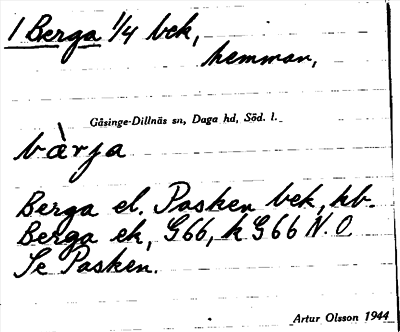 1 Berga 1/4 bek,
hemman,
Gåsinge-Dillnäs sn, Daga hd, Söd. l.
bàrja
Berga el. Pasken bek, kb.
Berga ek, G66, k G66 N.O
Se Pasken.
Artur Olsson 1944